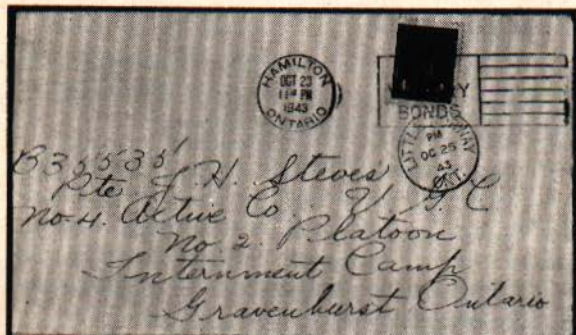 HAMILTON
OCT 23
PM
1943
ONTARIO
BONDS
LITTLE NORWAY
PM
OC 25
43
ONT.
B35535
Pte J. H. Steves
No-4. Active Co. V. G. C
No 2. Platoon
Internment Camp
Gravenhurst Ontario